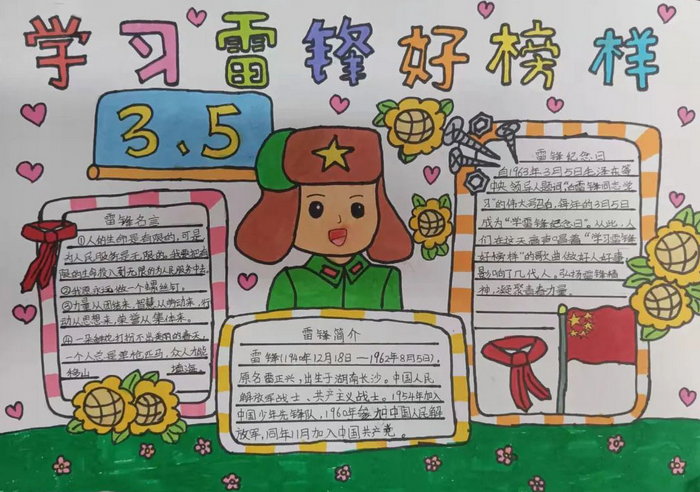 学习雷锋好榜样
3.5
雷锋名言
①人的生命是有限的,可是
为人民服务是无限的,我要把有
限的生命投入到无限的为人民服务中去。
②我要永远做一个螺丝钉。
③力量从团结来,智慧从劳动来,行
动从思想来,荣誉从集体来。
④一朵鲜花打扮不出美丽的春天,
一个人总是单枪匹马,众人才能
移山 填海。
雷锋简介
雷锋(1940年12月18日—1962年8月5日),
原名雷正兴,出生于湖南长沙。中国人民
解放军战士、共产主义战士。1954年加入
中国少年先锋队,1960年参加中国人民解
放军,同年11月加入中国共产党。
雷锋纪念日
自1963年3月5日毛泽东等
中央领导人题词“向雷锋同志学
习”的伟大号召,每年的3月5日
成为“学雷锋纪念日”。从此,人
们在这天高声唱着“学习雷锋
好榜样”的歌曲做好人好事
影响了几代人。弘扬雷锋精
神,凝聚青春力量